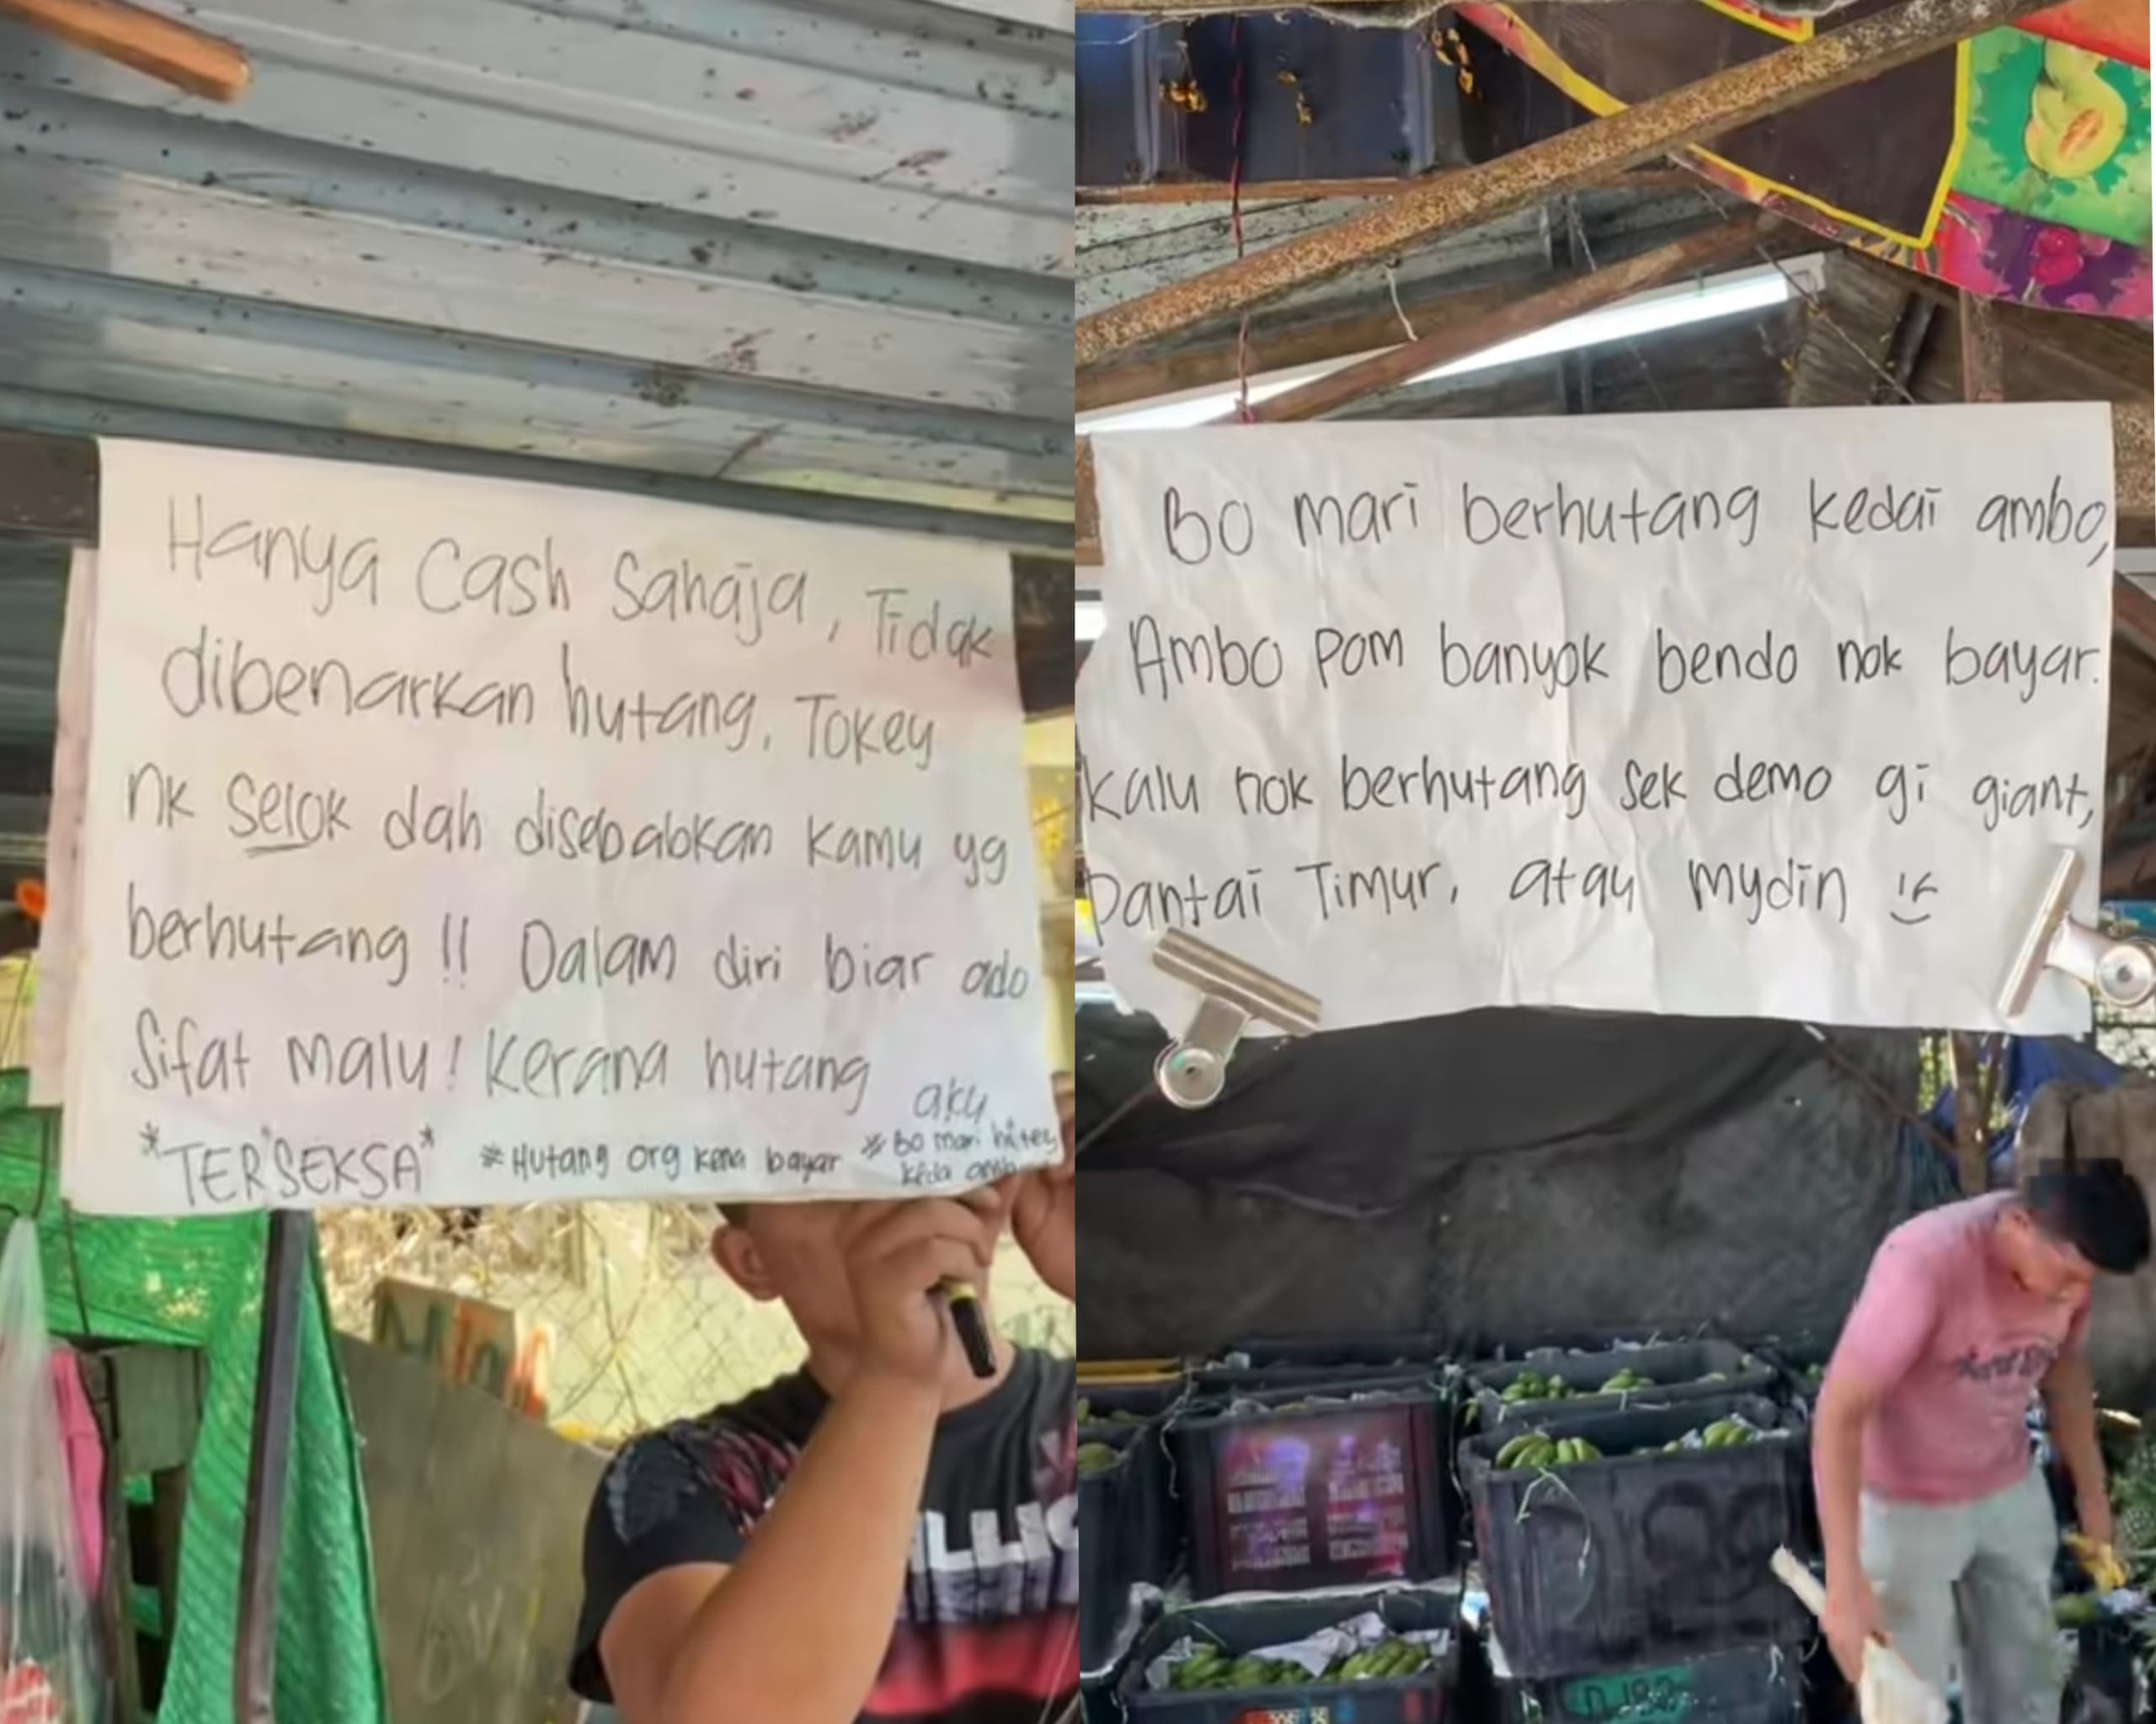 Hanya Cash Sahaja, Tidak
dibenarkan hutang, Tokey
nk selok dah disebabkan kamu yg
berhutang !! Dalam diri biar ado
Sifat malu! Kerana hutang
aku
*TERSEKSA* *Hutang org kena bayar
*Bo mari
keda
Bo mari berhutang kedai ambo,
Ambo pom banyok bendo nok bayar.
kalu nok berhutang sek demo gi giant,
Pantai Timur, atau mydin